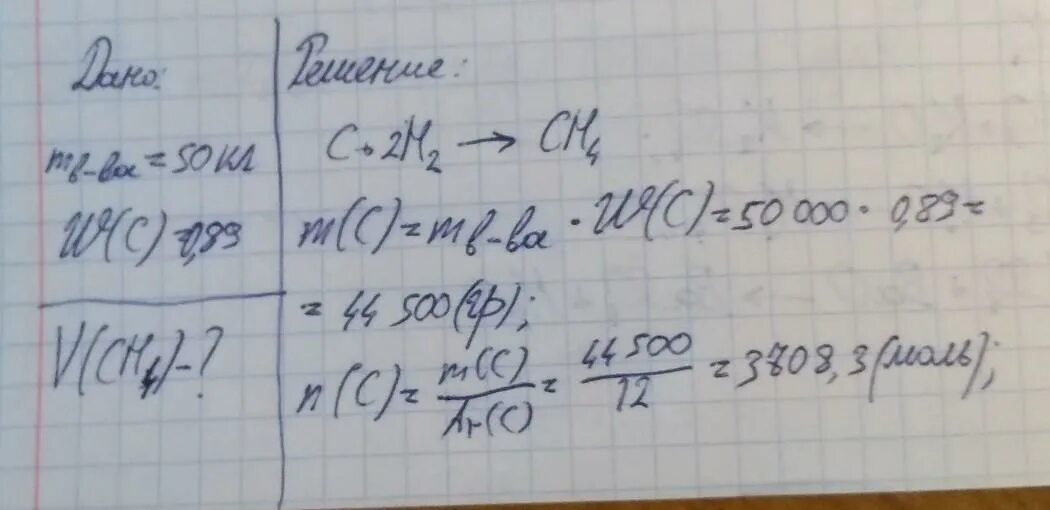 Дано:
m в-ва = 50 кг
W(C) = 0,89
V(CH₄) - ?
Решение:
C + 2H₂ → CH₄
m(C) = m в-ва · W(C) = 50 000 · 0,89 =
= 44 500 (гр);
n(C) = m(C)/Ar(C) = 44 500/12 = 3708,3 (моль);